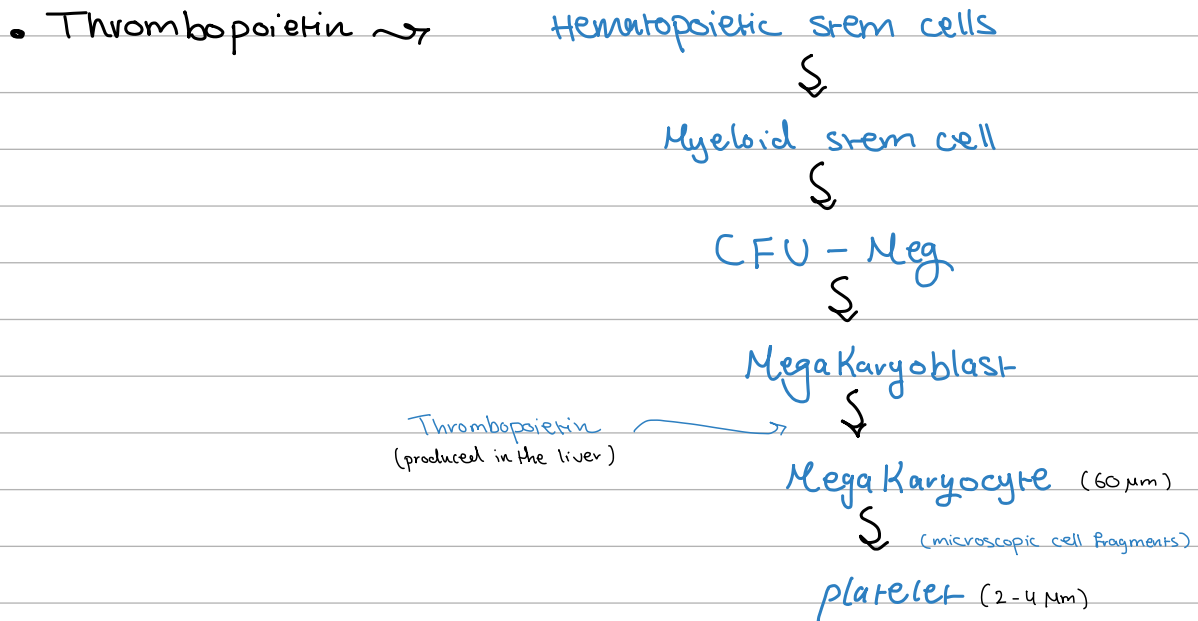 • Thrombopoietin ⤳ Hematopoietic stem cells
Myeloid stem cell
CFU - Meg
MegaKaryoblast
Thrombopoietin
(produced in the liver)
MegaKaryocyte (60 μm)
(microscopic cell fragments)
platelet (2-4 μm)